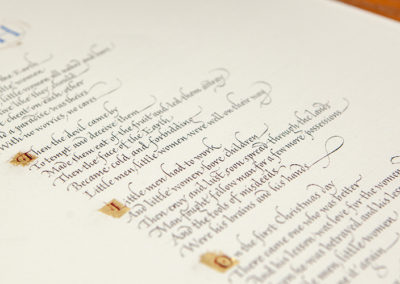 the Earth
little women
little women all naked and
like they should
cheat on each other
a paradise was theirs
With no worries, no cares
Then the devil came by
To tempt and deceive them
Made them eat of the fruit and led them astray
Then the face of the Earth
Became cold and forbidding
Little men, little women were well on their way
Little men had to work
And little women bore children
Then envy and lust soon spread through the land
Man fought fellow man for a few more possessions
And the tools of misdeeds
Were his brains and his hand
On the first Christmas Day
There came one who was better
And his lesson was love for the women
he was betrayed, and his
little men, little women
again